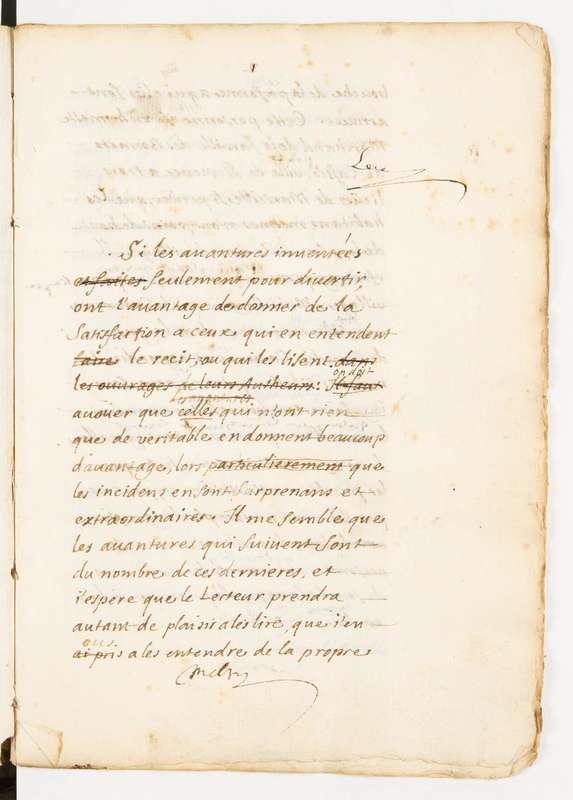 1
Si les auantures inventées
et faites seulement pour divertir
ont l'auantage de donner de la
Satisfaction a ceux qui en entendent
faire le recit, ou qui les lisent dans
on doit
les ouurages de leurs Autheurs: Il faut
auoüer que celles qui n'ont rien
que de veritable en donnent beaucoup
d'auantage, lors particulierement que
les incidens en sont Surprenans et
extraordinaires. Il me semble que
les auantures qui suivent sont
du nombre de ces dernieres, et
i'espere que le Lecteur prendra
autant de plaisir a les lire, que i'en
ai pris a les entendre de la propre